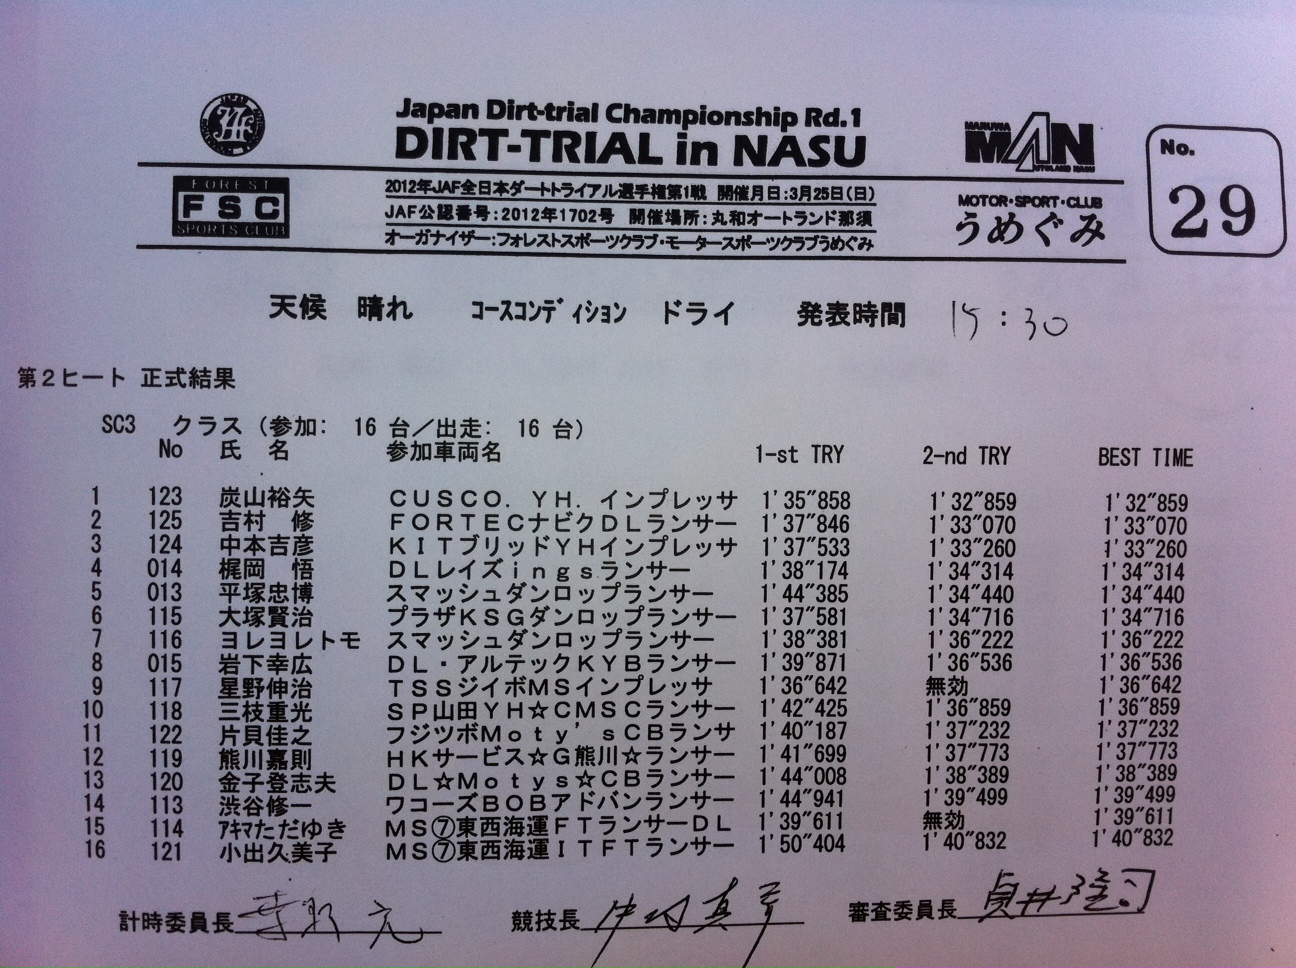 Japan Dirt-trial Championship Rd.1
DIRT-TRIAL in NASU
MARUWA
MAN
AUTOLAND NASU
No.
29
FOREST
FSC
SPORTS CLUB
2012年JAF全日本ダートトライアル選手権第1戦 開催月日:3月25日(日)
JAF公認番号:2012年1702号 開催場所:丸和オートランド那須
オーガナイザー:フォレストスポーツクラブ・モータースポーツクラブうめぐみ
MOTOR・SPORT・CLUB
うめぐみ
天候 晴れ コースコンディション ドライ 発表時間 15:30
第2ヒート 正式結果
SC3 クラス (参加: 16 台/出走: 16 台)
No 氏 名 参加車両名 1-st TRY 2-nd TRY BEST TIME
1 123 炭山裕矢 CUSCO. YH. インプレッサ 1'35"858 1'32"859 1'32"859
2 125 吉村 修 FORTECナビクDLランサー 1'37"846 1'33"070 1'33"070
3 124 中本吉彦 KITブリッドYHインプレッサ 1'37"533 1'33"260 1'33"260
4 014 梶岡 悟 DLレイズingsランサー 1'38"174 1'34"314 1'34"314
5 013 平塚忠博 スマッシュダンロップランサー 1'44"385 1'34"440 1'34"440
6 115 大塚賢治 プラザKSGダンロップランサー 1'37"581 1'34"716 1'34"716
7 116 ヨレヨレトモ スマッシュダンロップランサー 1'38"381 1'36"222 1'36"222
8 015 岩下幸広 DL・アルテックKYBランサー 1'39"871 1'36"536 1'36"536
9 117 星野伸治 TSSジイボMSインプレッサ 1'36"642 無効 1'36"642
10 118 三枝重光 SP山田YH☆CMSCランサー 1'42"425 1'36"859 1'36"859
11 122 片貝佳之 フジツボMoty'sCBランサ 1'40"187 1'37"232 1'37"232
12 119 熊川嘉則 HKサービス☆G熊川☆ランサー 1'41"699 1'37"773 1'37"773
13 120 金子登志夫 DL☆Motys☆CBランサー 1'44"008 1'38"389 1'38"389
14 113 渋谷修一 ワコーズBOBアドバンランサー 1'44"941 1'39"499 1'39"499
15 114 ｱｷﾏただゆき MS⑦東西海運FTランサーDL 1'39"611 無効 1'39"611
16 121 小出久美子 MS⑦東西海運ITFTランサー 1'50"404 1'40"832 1'40"832
計時委員長 競技長 審査委員長